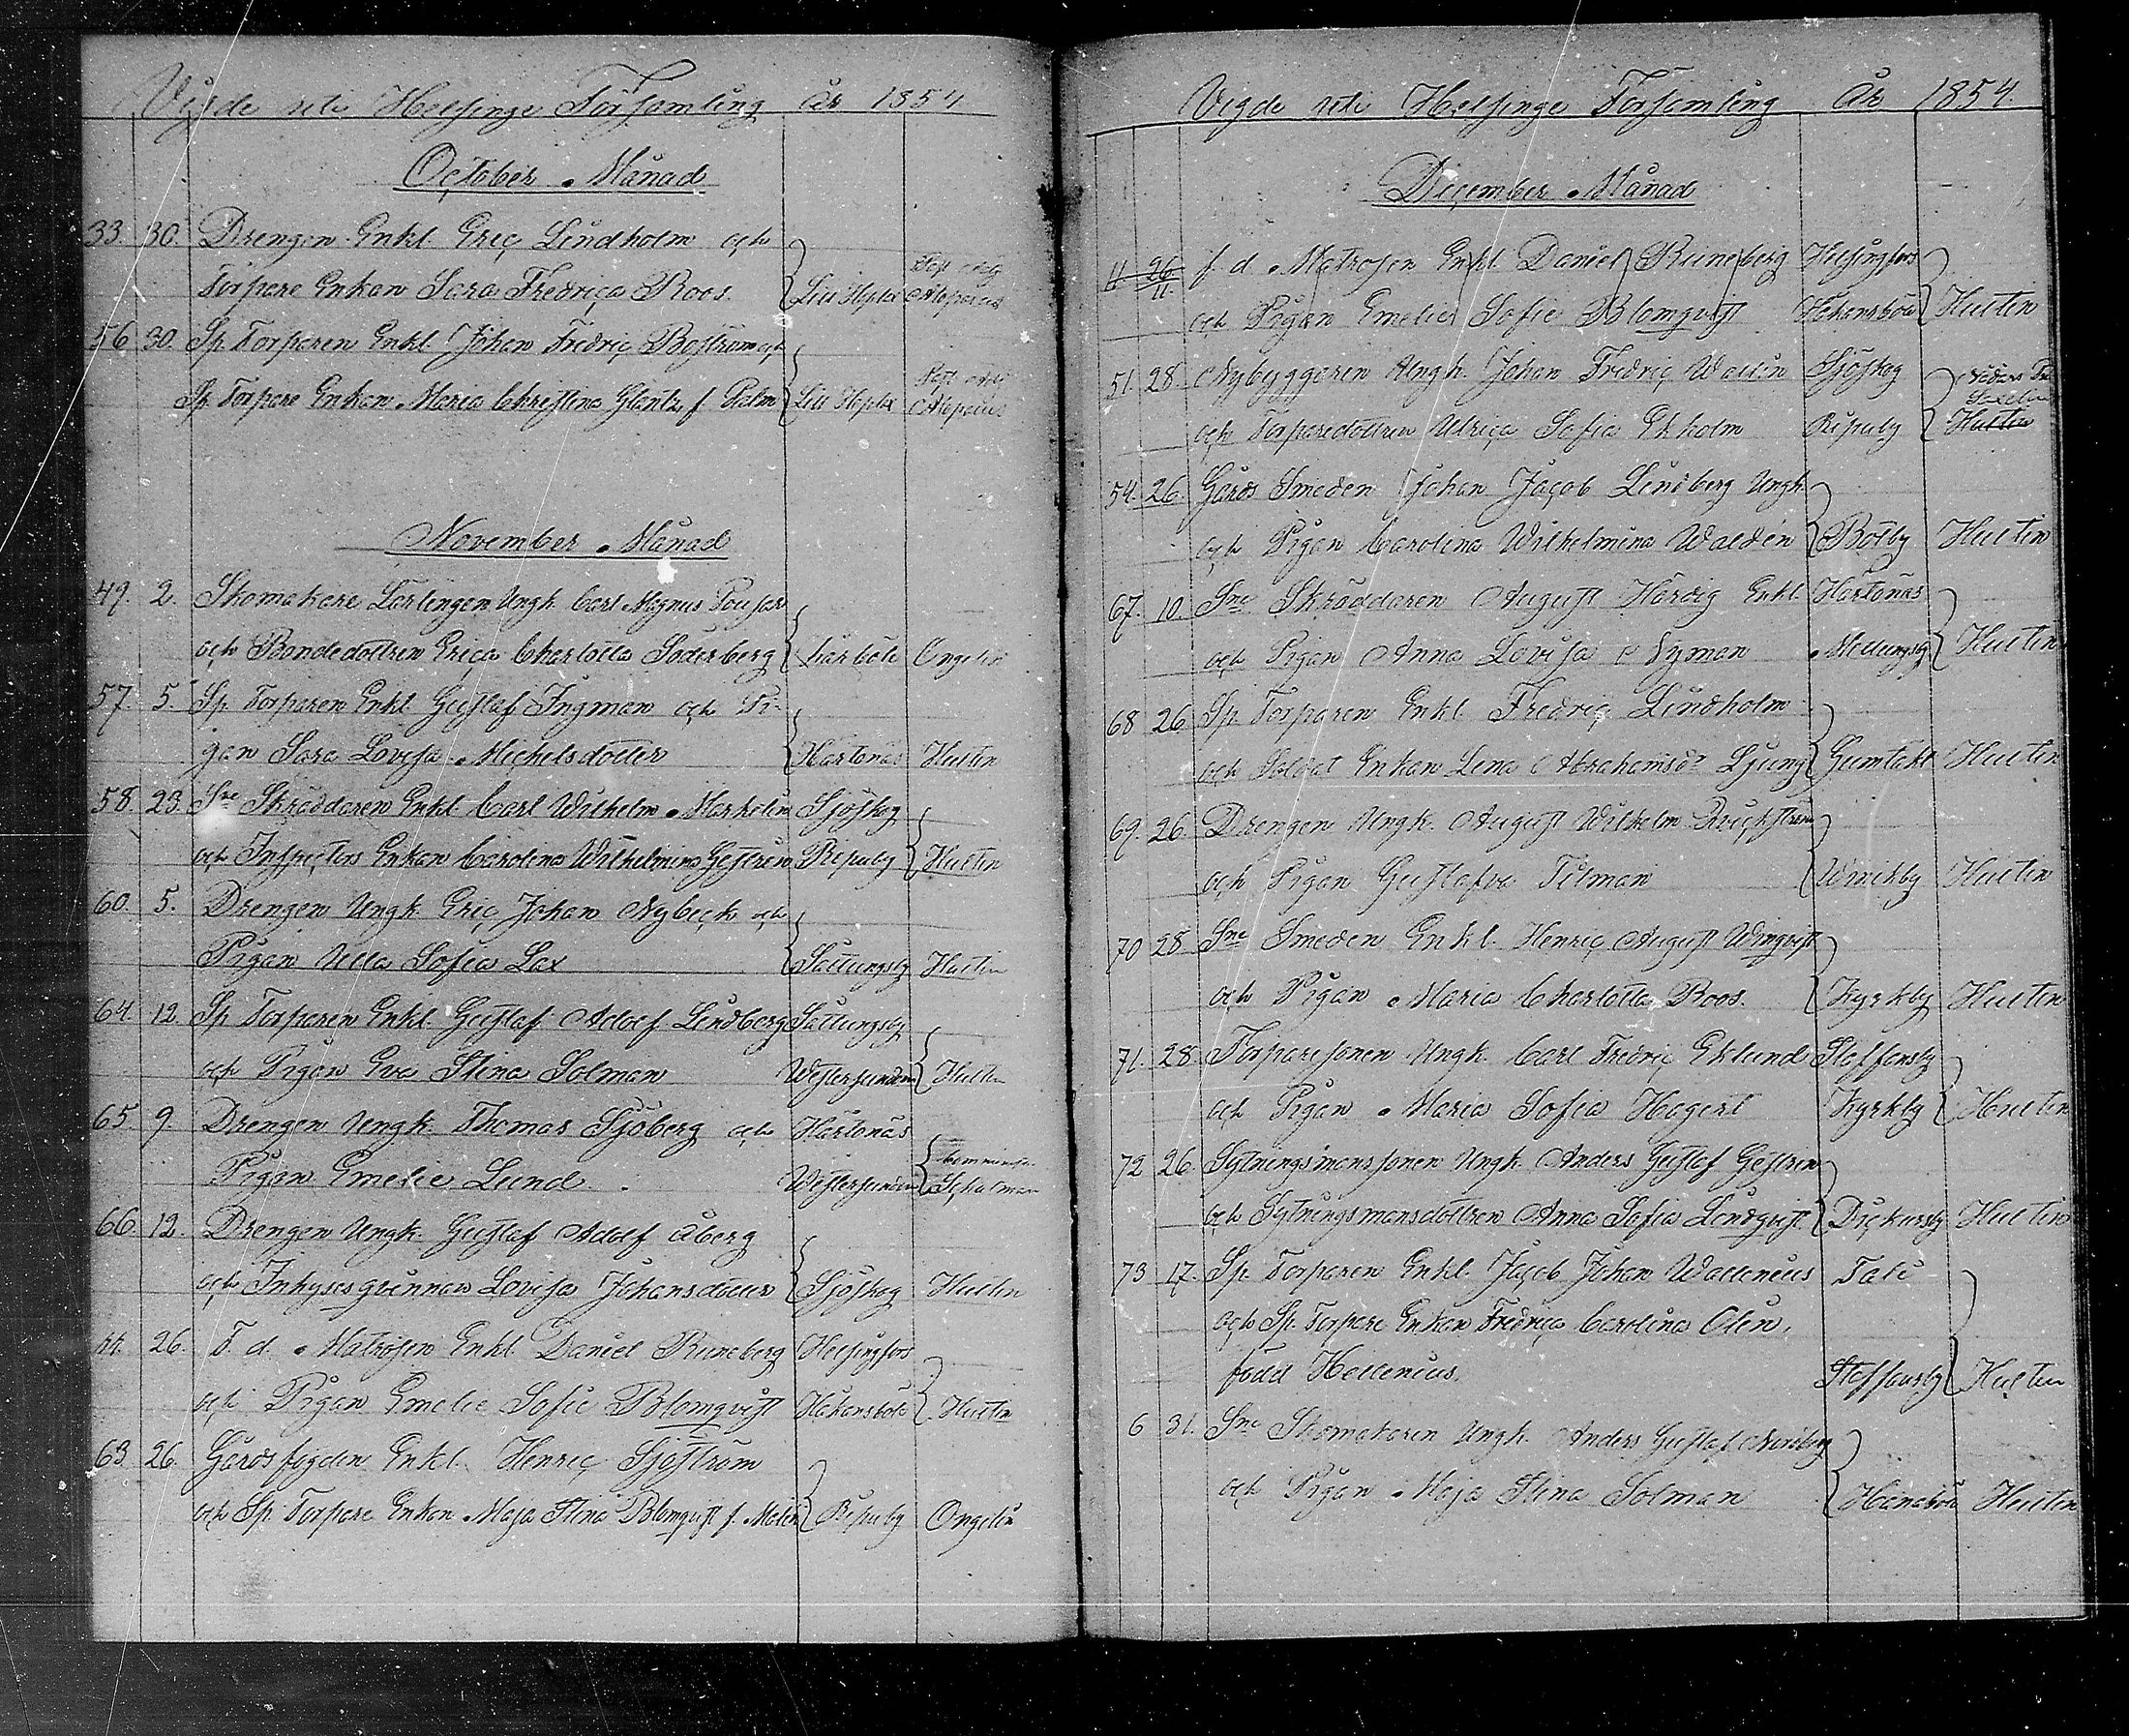 Vigde uti Helsinge Församling år 1854
October Månad
33. 30. Drengen Enkl. Eric Lindholm och
Torpare Enkan Sara Fredrica Roos. Lill Hoplax Alopæus
56 30. Sp. Torparen Enkl. Johan Fredric Boström och
Sp. Torpare Enkan Maria Christina Glantz f. Palm Lill Hoplax Alopæus
November Månad
49. 2. Skomakare Lärlingen Ungk. Carl Magnus
och Bondedottren Erica Charlotta Söderberg Ongelin
57. 5. Sp. Torparen Enkl. Gustaf Ingman och Pi-
gan Sara Lovisa Michelsdotter Hartonäs Hultin
58. 23. Sne Skräddaren Enkl. Carl Wilhelm Markelin Sjöskog
och Inspectors Enkan Carolina Wilhelmina Gestrén Ripuby Hultin
60. 5. Drengen Ungk. Eric Johan Nybeck och
Pigan Ulla Sofia Lax Sattungsby Hultin
64. 12. Sp. Torparen Enkl. Gustaf Adolf Lindberg Sattungsby
och Pigan Eva Stina Solman Westersundom Hultin
65. 9. Drengen Ungk. Thomas Sjöberg och Hartonäs
Pigan Emelie Lund. Westersundom Schalman
66. 12. Drengen Ungk. Gustaf Adolf Åberg
och Inhysesqvinnan Lovisa Johansdotter Sjöskog Hultin
26. F. d. Matrosen Enkl. Daniel Runeberg Helsingfors
och Pigan Emelie Sofie Blomqvist Håkansböle Hultin
63. 26. Gårdsfogden Enkl. Henric Sjöström
och Sp. Torpare Enkan Maja Stina Blomqvist f. Malin Ripuby Ongelin
Vigde uti Helsinge Församling År 1854.
December Månad
11 26 11. f. d. Matrosen Enkl. Daniel Runeberg Helsingfors
och Pigan Emelie Sofie Blomqvist Håkansböle Hultin
51. 28. Nybyggaren Ungk. Johan Fredric Wallin Sjöskog
och Torparedottren Ulrica Sofia Ekholm Ripuby Hultin
54. 26. Gårds Smeden Johan Jacob Lindberg Ungk.
och Pigan Carolina Wilhelmina Waldén Botby Hultin
67. 10. Sne Skräddaren August Hårdig Enkl. Hartonäs
och Pigan Anna Lovisa Nyman Mellungsby Hultin
68 26. Sp. Torparen Enkl. Fredric Lindholm
och Soldat Enkan Lena Abrahamsdr Ljung Gumtäkt Hultin
69. 26. Drengen Ungk. August Wilhelm
och Pigan Gustafva Tilman Winikby Hultin
70 28. Sne Smeden Enkl. Henric August Wingvist
och Pigan Maria Charlotta Roos. Kyrkby Hultin
71. 28. Torparesonen Ungk. Carl Fredric Eklund Staffansby
och Pigan Maria Sofia Hagert Kyrkby Hultin
72 26. Sytningsmanssonen Ungk. Anders Gustaf Gestren
och Sytningsmansdottren Anna Sofia Lindqvist. Dickursby Hultin
73 17. Sp. Torparen Enkl. Jacob Johan Wallenius Tali
och Sp. Torpare Enkan Fredrica Carolina Olin,
född Hellenius. Staffansby Hultin
6 31. Sne Skomakaren Ungk. Anders Gustaf
och Pigan Maja Stina Solman Hanaböle Hultin